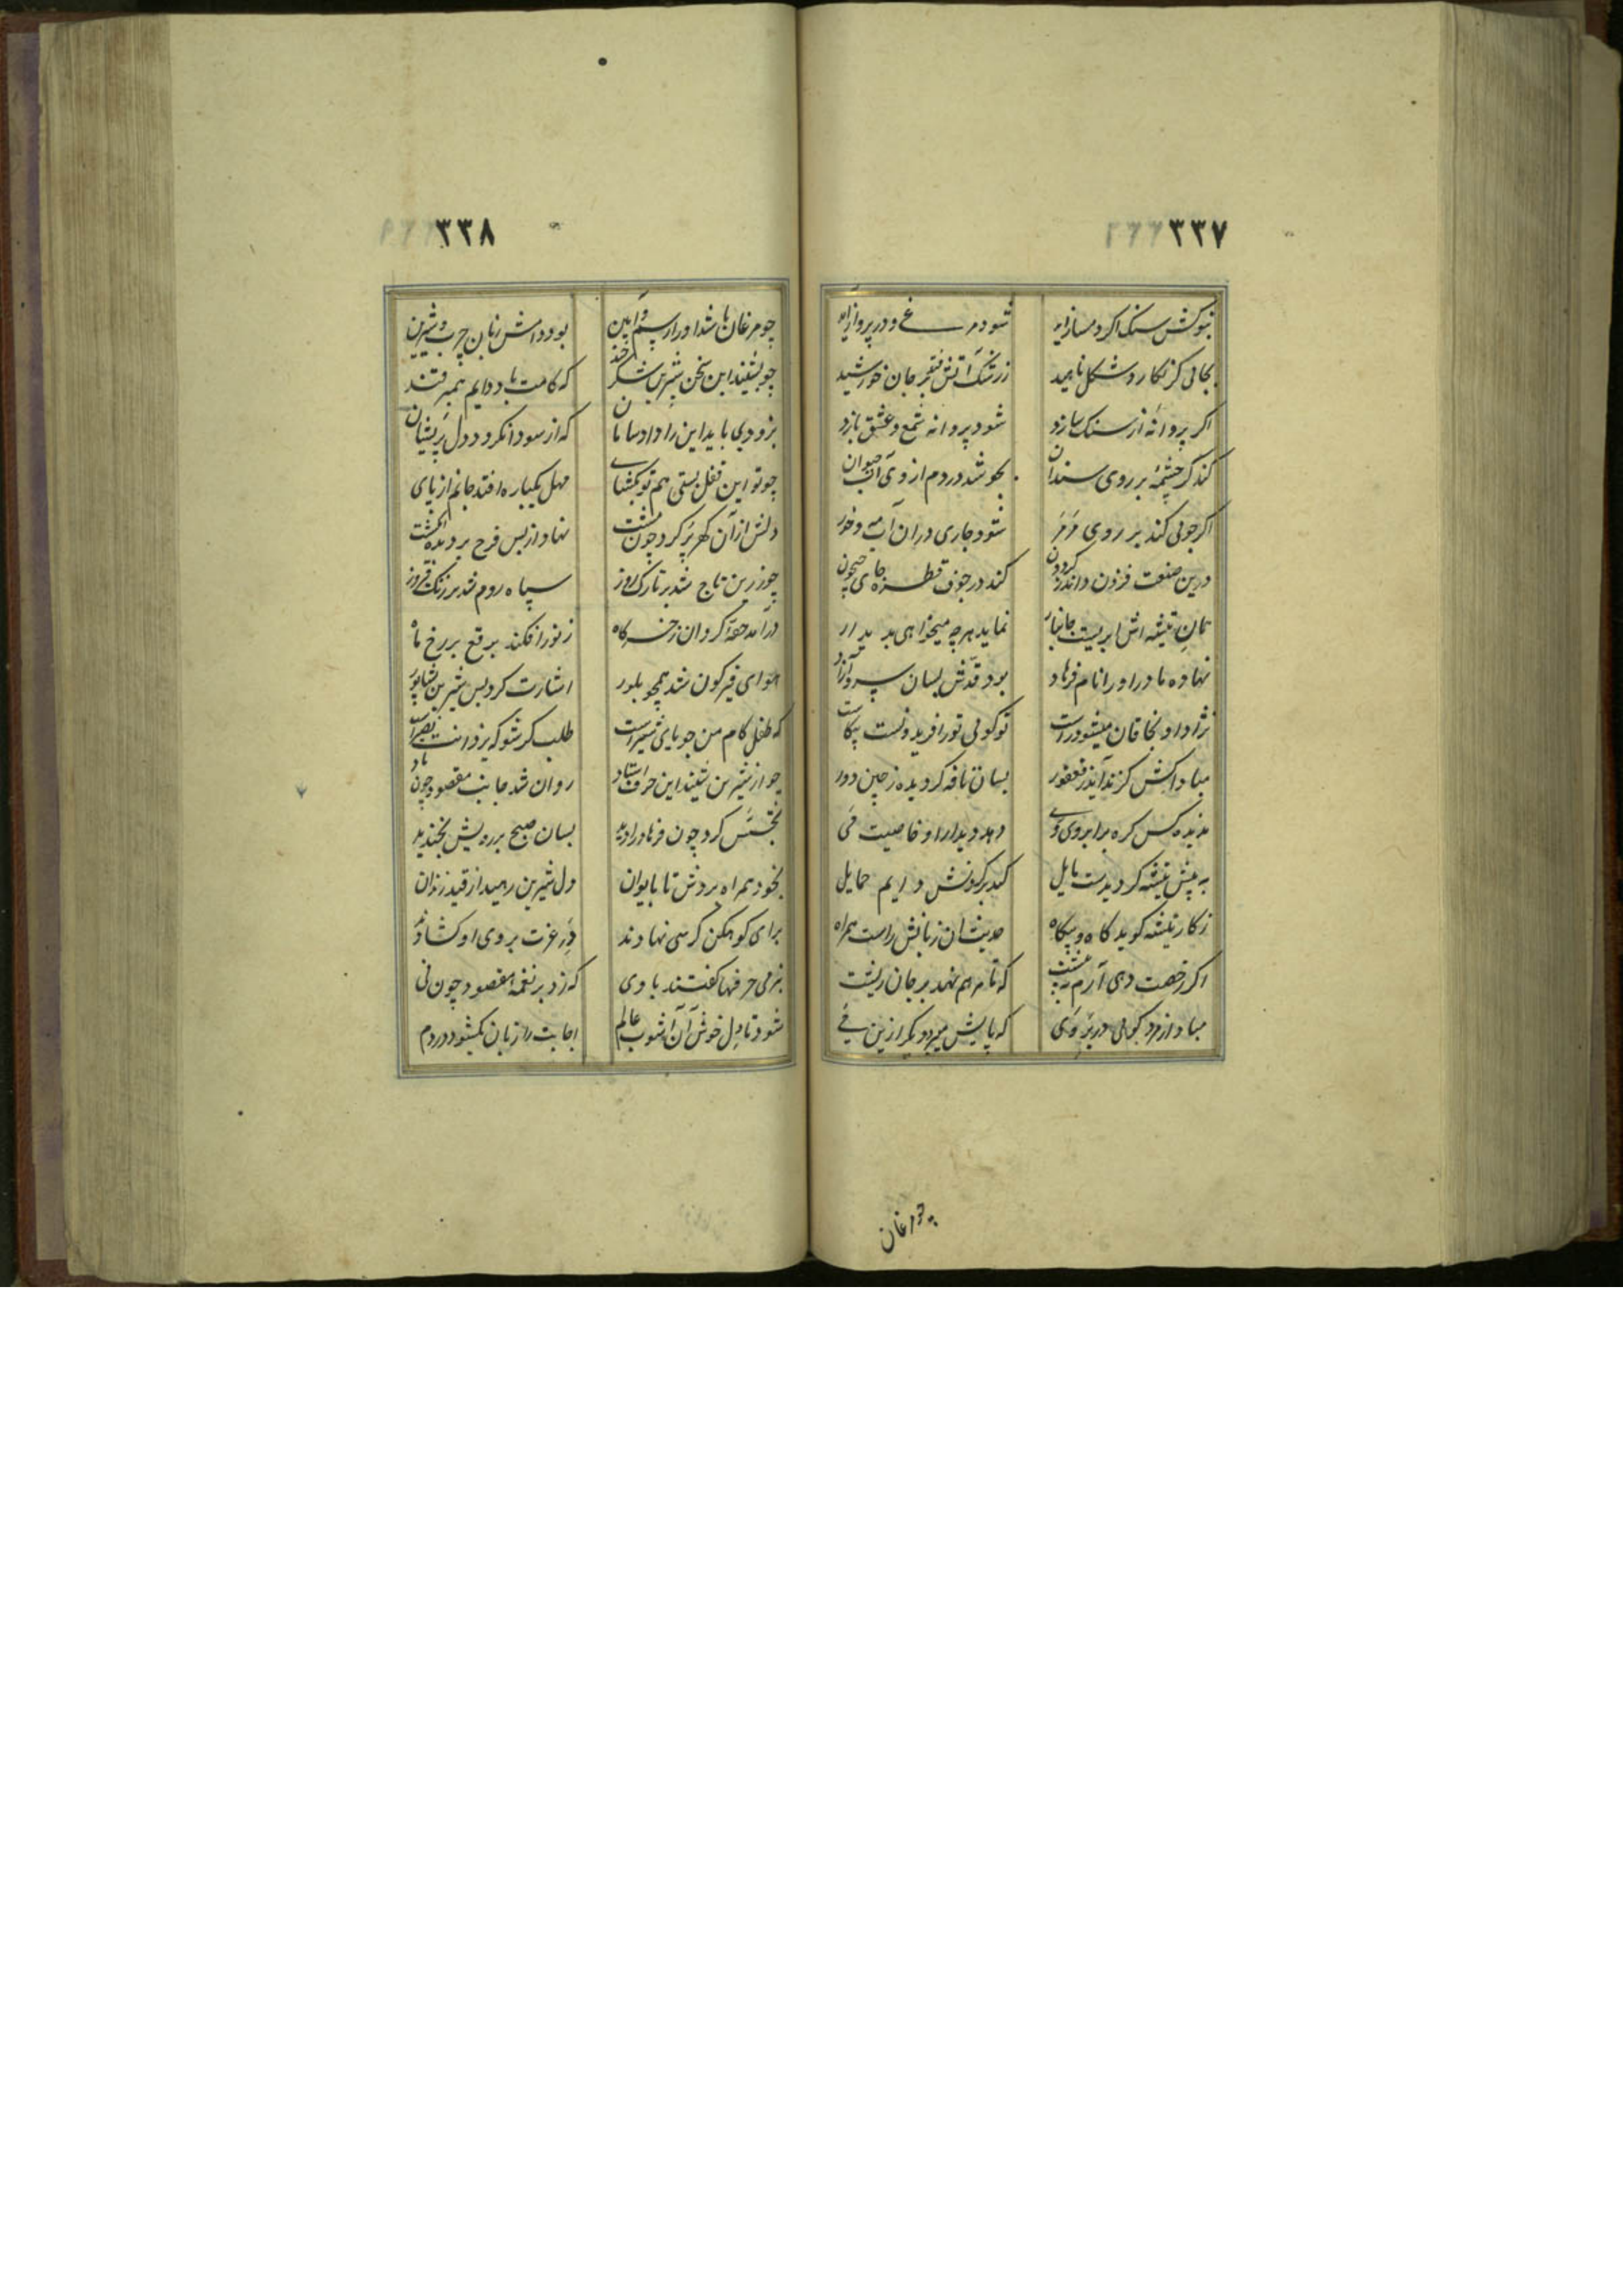 ٣٣٧
شود مرغ و در پرواز آید
بجائی کز نگارد شکل ناهید
ز رشک آتش فتد بر جان خورشید
اگر پروانهٔ از سنگ سازد
شود پروانه شمع و عشق بازد
کند گر چشمهٔ بر روی سندان
بجوشد در دم از وی آب حیوان
اگر جوئی کند بر روی مرمر
شود جاری در آن آب
درین صنعت فزون داند ز گردون
کند در جوف قطره جای جیحون
نماید هر چه میخواهی پدیدار
نهاده مادر او را نام فرهاد
بود قدش بسان سرو آزاد
نژاد او بخاقان میشود راست
تو گوئی تور افریدونست بیکاست
مباداکش گزند آید ز فغفور
بسان نافه گردیده ز چین دور
ندیده کس گره بر ابروی وی
دهد دیدار او خاصیت می
به پیش تیشه گردیدست مایل
کند بر گردنش دایم حمایل
ز کار تیشه گوید گاه و بیگاه
حدیث آن زبانش راست همراه
اگر رخصت دهی آرم به پیشت
که تا مرهم نهد بر جان ریشت
که پایش میرود دیگر ازین
چو مرغان
٣٣٨
چو مرغان باشد او را رسم و آیین
بود دامش زبان چرب و شیرین
چو بشنید این سخن شیرین شکرخند
که کامت باد دایم همبر قند
بزودی باید این را داد سامان
که از سودا نگردد دل پریشان
چو تو این قفل بستی هم تو بگشای
مهل یکباره افتد جانم از پای
دلش از آن گهر پر کرد چون مشت
نهاد از بس فرح بر دیده انگشت
چو زرین تاج شد بر تارک روز
سپاه روم شد بر زنگ فیروز
در آمد گردان ز خرگاه
ز نور افکند برقع بر رخ ماه
هوای قیرگون شد همچو بلور
اشارت کرد پس شیرین بشاپور
که طفل کام من جویای شیر است
طلب گر شو که یزدانت نصیر است
چو از شیرین شنید این حرف استاد
روان شد جانب مقصود چون باد
تجسس کرد چون فرهاد را دید
بسان صبح بر رویش بخندید
بخود همراه بردش تا بایوان
دل شیرین رهید از قید زندان
برای کوهکن کرسی نهادند
در عزت بروی او گشادند
بنرمی حرفها گفتند با وی
که زد بر نغمه مقصود چون نی
شود تا دل خوش آن آشوب عالم
اجابت را زبان بگشود در دم